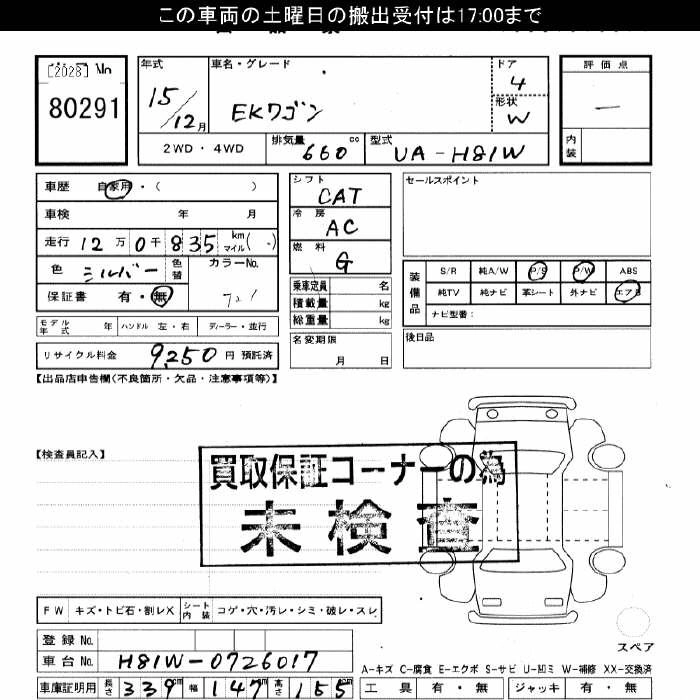 この車両の土曜日の搬出受付は17:00まで
[2028] No
80291
年式
15/12月
車名・グレード
EKワゴン
ドア
4
形状
W
評価点
—
内装
2WD・4WD
排気量 660 cc
型式 UA-H81W
車歴 自家用・( )
車検 年 月
走行 12万0千835 km マイル( )
色 シルバー 色替 カラーNo.
保証書 有・無
モデル年式 年 ハンドル 左・右 ディーラー・並行
リサイクル料金 9,250 円 預託済
シフト CAT
冷房 AC
燃料 G
乗車定員 名
積載量 kg
総重量 kg
名変期限
月 日
セールスポイント
装備品
S/R 純A/W P/S P/W ABS
純TV 純ナビ 革シート 外ナビ エアB
ナビ型番:
後日品
【出品店申告欄(不良箇所・欠品・注意事項等)】
【検査員記入】
買取保証コーナーの為
未検査
FW キズ・トビ石・割レX シート内装 コゲ・穴・汚レ・シミ・破レ・スレ
スペア
登録No.
車台No. H81W-0726017
A-キズ C-腐食 E-エクボ S-サビ U-凹ミ W-補修 XX-交換済
車庫証明用 長さ 339cm 幅 147cm 高さ 155cm
工具 有・無 ジャッキ 有・無